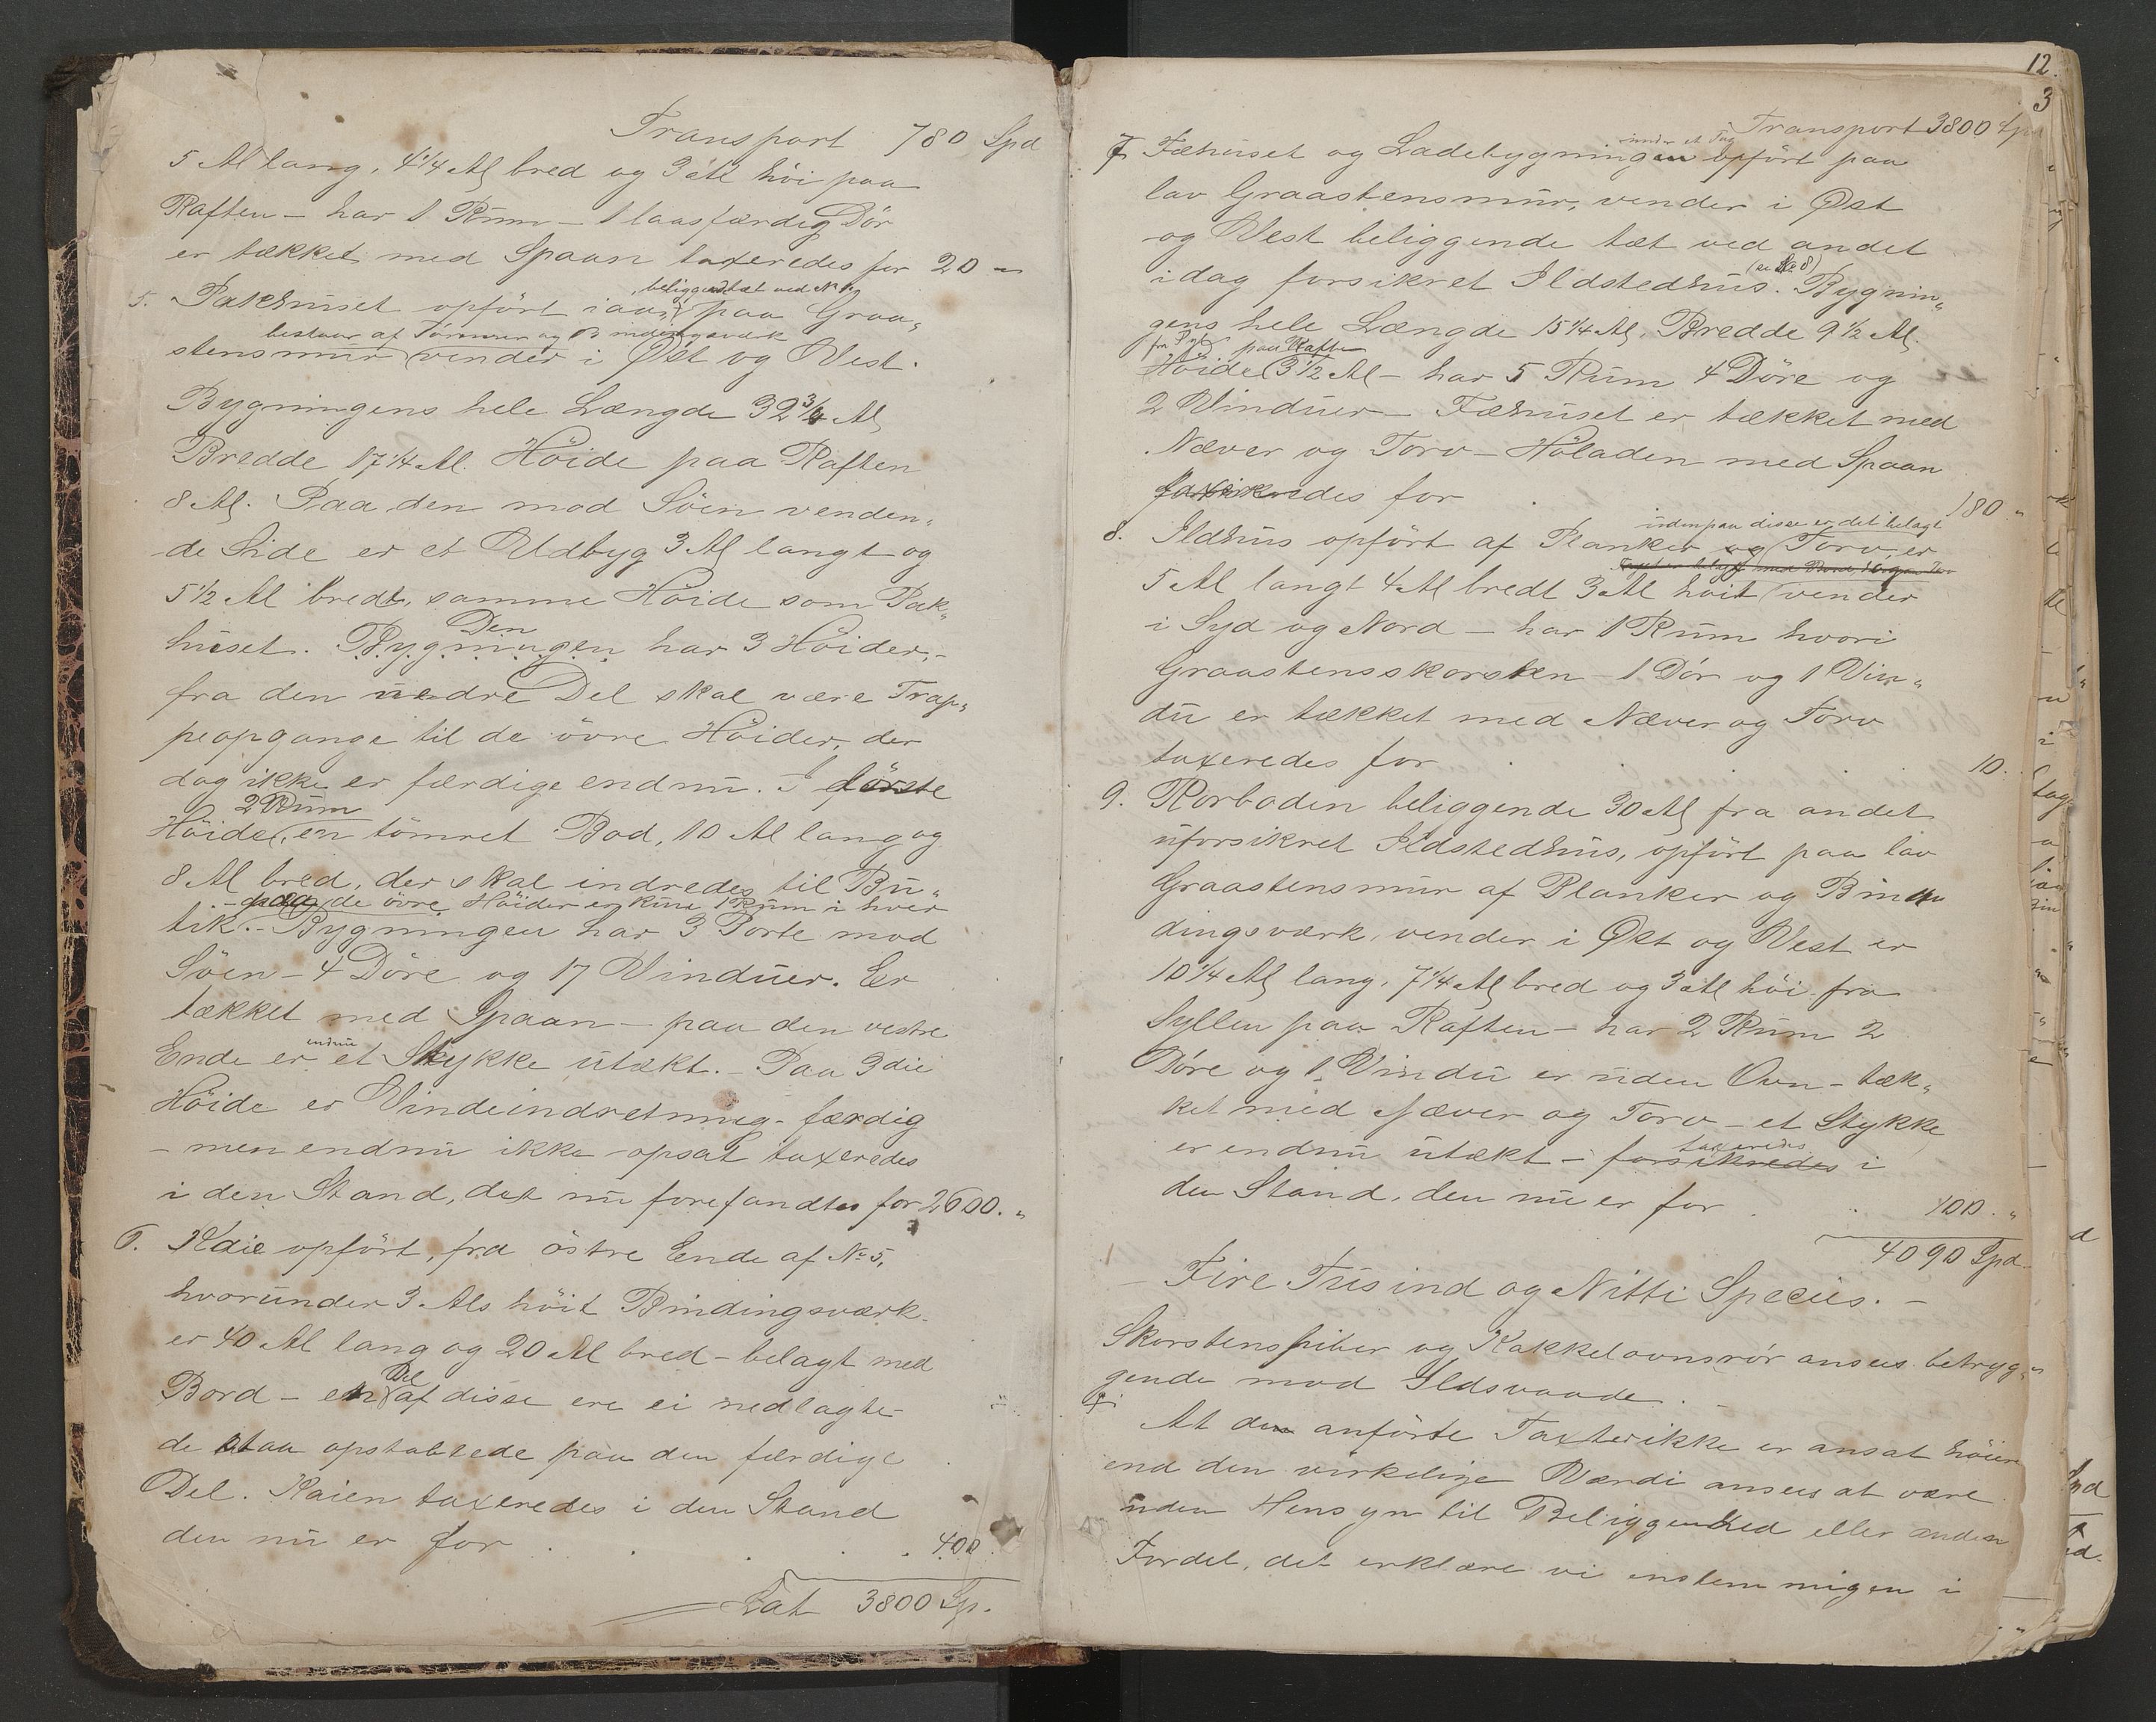 Transport 780 Spd
5 Al lang, 4 1/4 Al bred og 3 Al höi paa
Raften – har 1 Rum – 1 laasfærdig Dör
er tækket med Spaan taxeredes for 20 "
beliggende tæt ved No 4
5. Pakhuset opført iaar paa Graa„
bestaar af Tömmer og Bindingsværk
stensmur vender i Øst og Vest.
Bygningens hele Længde 32 3/4 Al
Bredde 17 1/4 Al. Höide paa Raften
8 Al. Paa den mod Söen venden„
de Side er et Udbyg 3 Al langt og
5 1/2 Al bredt, samme Höide som Pak„
Den
huset. Bygningen har 3 Höider,–
fra den nedre Del skal være Trap„
peopgange til de övre Höider, der
dog ikke er færdige endnu. I förste
2 Rum
Höide, en tömret Bod, 10 Al lang og
8 Al bred, der skal indredes til Bu„
– paa de övre Höider er kun 1 Rum i hver
tik. – Bygningen har 3 Porte mod
Söen – 4 Döre og 17 Vinduer. Er
tækket med Spaan – paa den vestre
endnu
Ende er et Stykke utækt. – Paa 3die
Höide er Vindeindretning – færdig
– men endnu ikke opsat taxeredes
i den Stand, det nu forefandtes for 2600. "
6. Kaie opfört, fra östre Ende af No 5,
hvorunder 3 Als höit Bindingsværk
er 40 Al lang og 20 Al bred – belagt med
Del
Bord – en af disse ere ei nedlagte
de staa opstablede paa den færdige
Del. Kaien taxeredes i den Stand
den nu er for . . . . 400
Lat 3800 Sp.
12.
3
Transport 3800 Sp
under et Tag
7. Fæhuset og Ladebygningen opfört paa
lav Graastensmur, vender i Øst
og Vest beliggende tæt ved andet
(se No 8)
idag forsikret Ildstedhus. Bygnin„
gens hele Længde 15 1/4 Al, Bredde 9 1/2 Al.
fra Syl paa Raften
Höide 3 1/2 Al – har 5 Rum 4 Döre og
2 Vinduer – Fæhuset er tækket med
Næver og Torv – Höladen med Spaan
edes for . 180 "
udenpaa disse er det belagt
8. Ildhus opfört af Planker og Torv, er
5 Al langt 4 Al bredt 3 Al höit vender
i Syd og Nord – har 1 Rum hvori
Graastensskorsten – 1 Dör og 1 Vin„
du er tækket med Næver og Torv
taxeredes for . . . 10.
9. Rorboden beliggende 30 Al fra andet
uforsikret Ildstedhus, opfört paa lav
Graastensmur af Planker og Bin
dingsværk, vender i Øst og Vest er
10 1/4 Al lang, 7 1/4 Al bred og 3 Al höi fra
Syllen paa Raften – har 2 Rum 2
Döre og 1 Vindu er uden Ovn – tæk„
ket med Næver og Torv – et Stykke
taxeredes
er endnu utækt – forsikredes i
den Stand, den nu er for . . 100. "
4090 Spd
– Fire Tusind og Nitti Species. –
Skorstenspiber og Kakkelovnsrör ansees betryg„
gende mod Ildsvaade.
At den anförte Taxt ikke er ansat höiere
end den virkelige Værdi ansees at være
uden Hensyn til Beliggenhed eller anden
Fordel, det erklære vi enstemmigen i